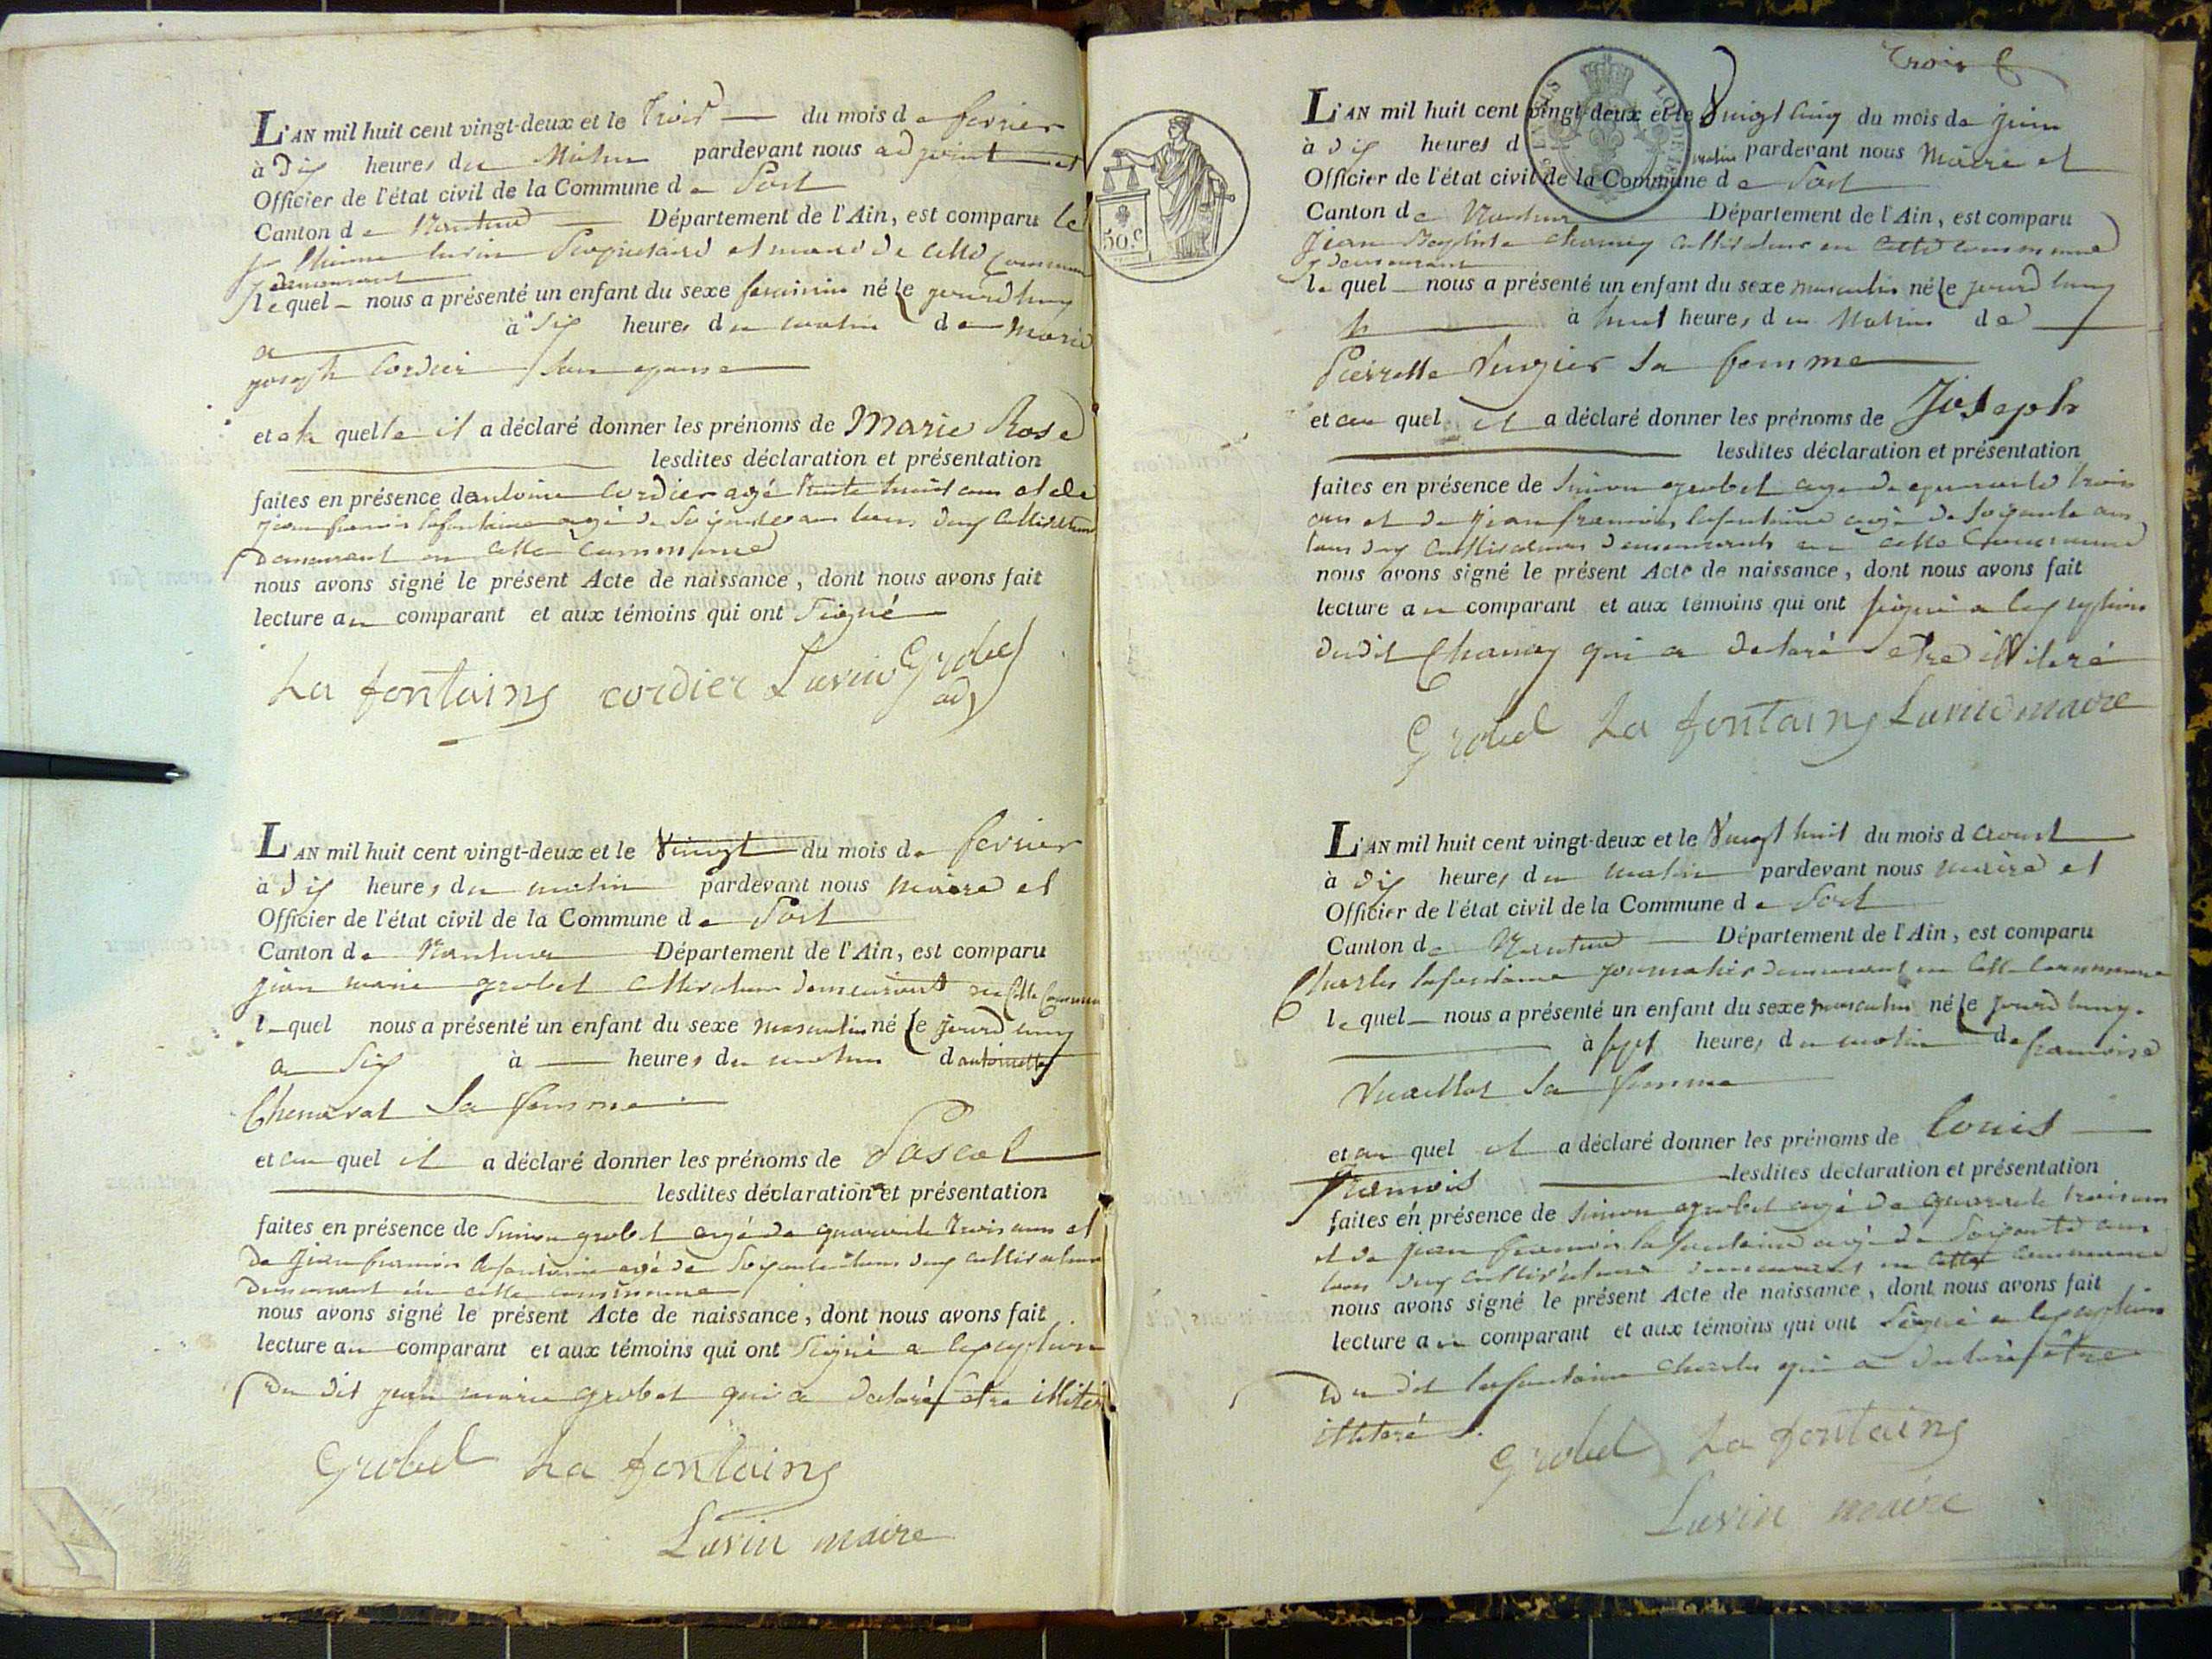 L'AN mil huit cent vingt-deux et le trois du mois de fevrier
à dix heures du matin pardevant nous adjoint et
Officier de l'état civil de la Commune de Port
Canton de Nantua Département de l'Ain, est comparu le
Luvin Propriétaire et maire de cette Commune
y demeurant
lequel nous a présenté un enfant du sexe feminin né le jourdhuy
à six heures du matin de Marie
joseph Cordier son epouse
et a la quelle il a déclaré donner les prénoms de Marie Rose
lesdites déclaration et présentation
faites en présence dantoine Cordier agé trente huit ans et de
jean francois lafontaine agé de soixante ans tous deux Cultivateurs
Demeurant en cette Commune
nous avons signé le présent Acte de naissance, dont nous avons fait
lecture au comparant et aux témoins qui ont Signé
La fontaing cordier Luvin Grobel
adj
L'AN mil huit cent vingt-deux et le Vingt du mois de fevrier
à dix heures du matin pardevant nous maire et
Officier de l'état civil de la Commune de Port
Canton de Nantua Département de l'Ain, est comparu
jean marie grobel Cultivateur demeurant en Cette Commune
lequel nous a présenté un enfant du sexe masculin né le jourdhuy
a Six à heures du matin dantoinette
sa femme
et au quel il a déclaré donner les prénoms de Pascal
lesdites déclaration et présentation
faites en présence de Simon grobel agé de quarante trois ans et
De jean francois lafontaine agé de Soixante ans tous deux cultivateurs
Demeurant en cette commune
nous avons signé le présent Acte de naissance, dont nous avons fait
lecture au comparant et aux témoins qui ont Signé a lexception
Du dit jean marie grobel qui a declaré etre illiteré
Grobel La fontaing
Luvin maire
Trois
50.c
L'AN mil huit cent vingt-deux et le Vingt cinq du mois de juin
à dix heures d matin pardevant nous Maire et
Officier de l'état civil de la Commune de Port
Canton de Nantua Département de l'Ain, est comparu
Jean Baptiste Cultivateur en cette commune
y demeurant
lequel nous a présenté un enfant du sexe masculin né le jourdhuy
à huit heures du Matin de
Pierrette sa femme
et au quel il a déclaré donner les prénoms de Joseph
lesdites déclaration et présentation
faites en présence de Simon grobel agé de quarante trois
ans et de jean francois lafontaine agé de soixante ans
tous deux Cultivateurs demeurants en cette Commune
nous avons signé le présent Acte de naissance, dont nous avons fait
lecture au comparant et aux témoins qui ont signé a lexception
dudit qui a declaré etre illiteré
Grobel La fontaing Luvin maire
L'AN mil huit cent vingt-deux et le Vingt huit du mois d aoust
à dix heures du matin pardevant nous maire et
Officier de l'état civil de la Commune de Port
Canton de Nantua Département de l'Ain, est comparu
Charles lafontaine journalier demeurant en Cette Commune
lequel nous a présenté un enfant du sexe masculin né le jourdhuy
à sept heures du matin de francoise
sa femme
et au quel il a déclaré donner les prénoms de Louis
francois lesdites déclaration et présentation
faites en présence de Simon grobel agé de quarante trois ans
et de jean francois lafontaine agé de Soixante ans
tous deux cultivateurs demeurant en cette commune
nous avons signé le présent Acte de naissance, dont nous avons fait
lecture au comparant et aux témoins qui ont Signé a lexception
Du dit lafontaine Charles qui a declaré etre
illiteré
Grobel La fontaing
Luvin maire